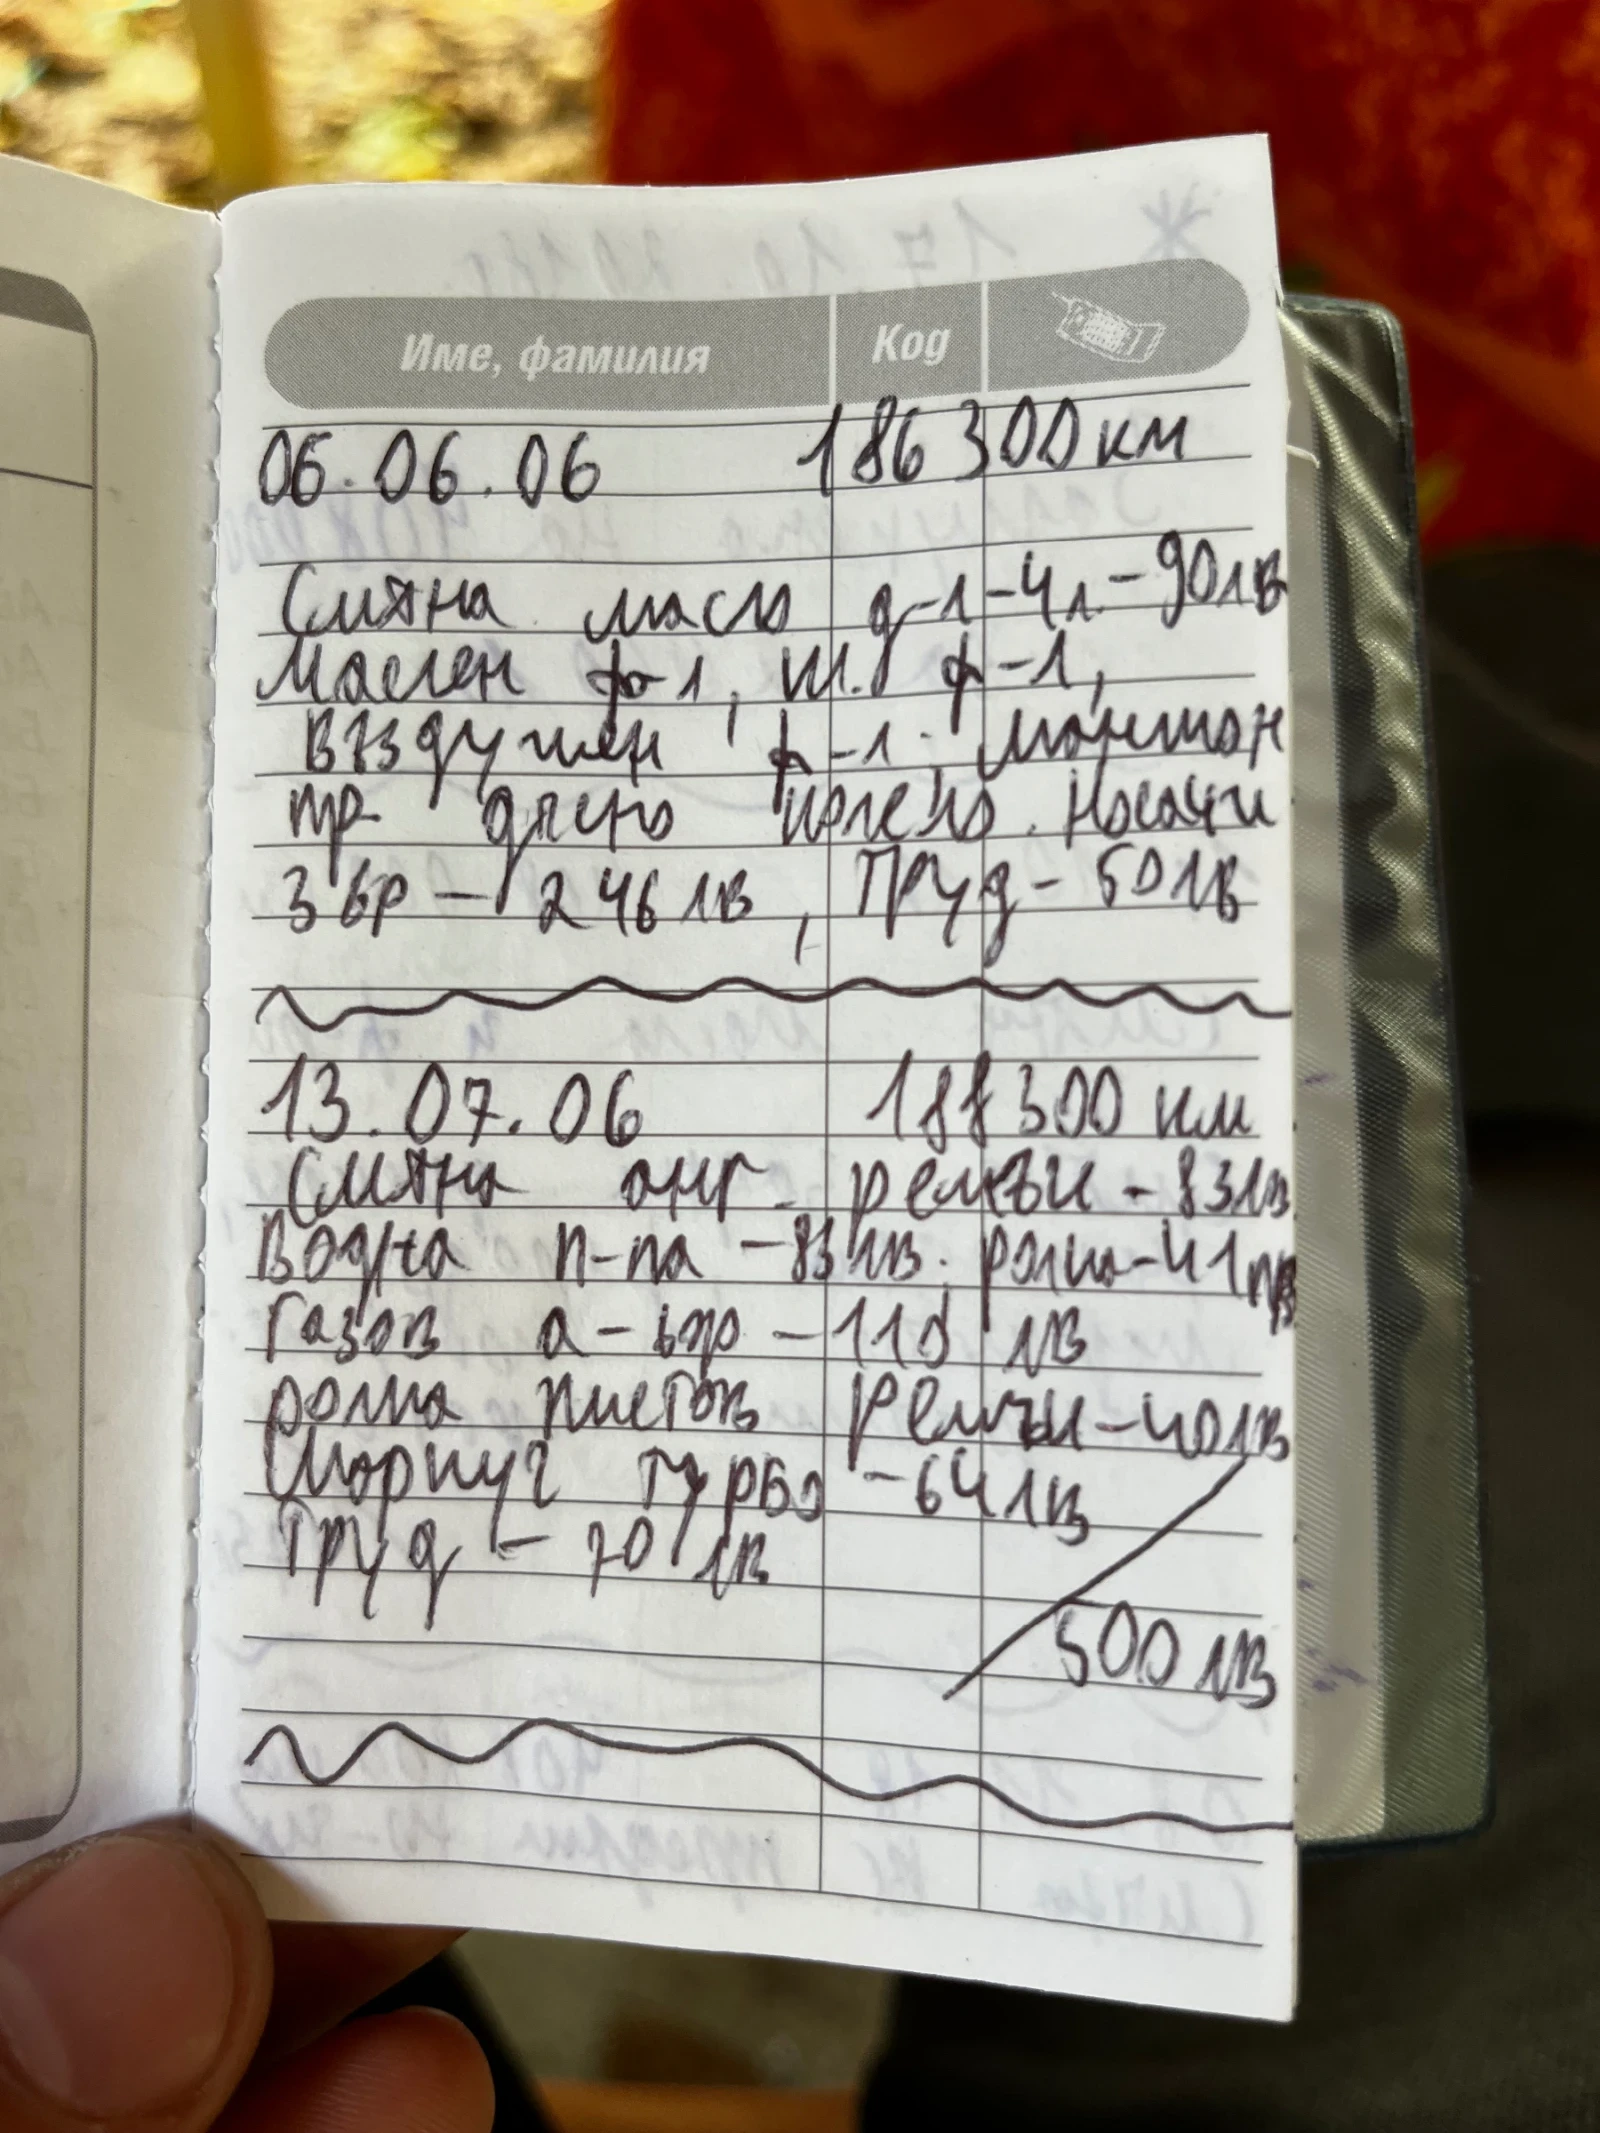 Име, фамилия Код
06.06.06 186 300 км
Смяна масло д-л - 4л. - 90лв
Маслен ф-л, ф-л,
Въздушен ф-л. маншон
пр. дясно колело. Носачи
3 бр - 246 лв, Труд - 50 лв
13.07.06 188 300 км
Смяна анг. ремъци - 83лв
Водна п-па - 83 лв. ролка - 41лв
Газов а-ьор - 110 лв
ролка пистов ремък - 40лв
Маркуч турбо - 64 лв
Труд - 70 лв
500 лв